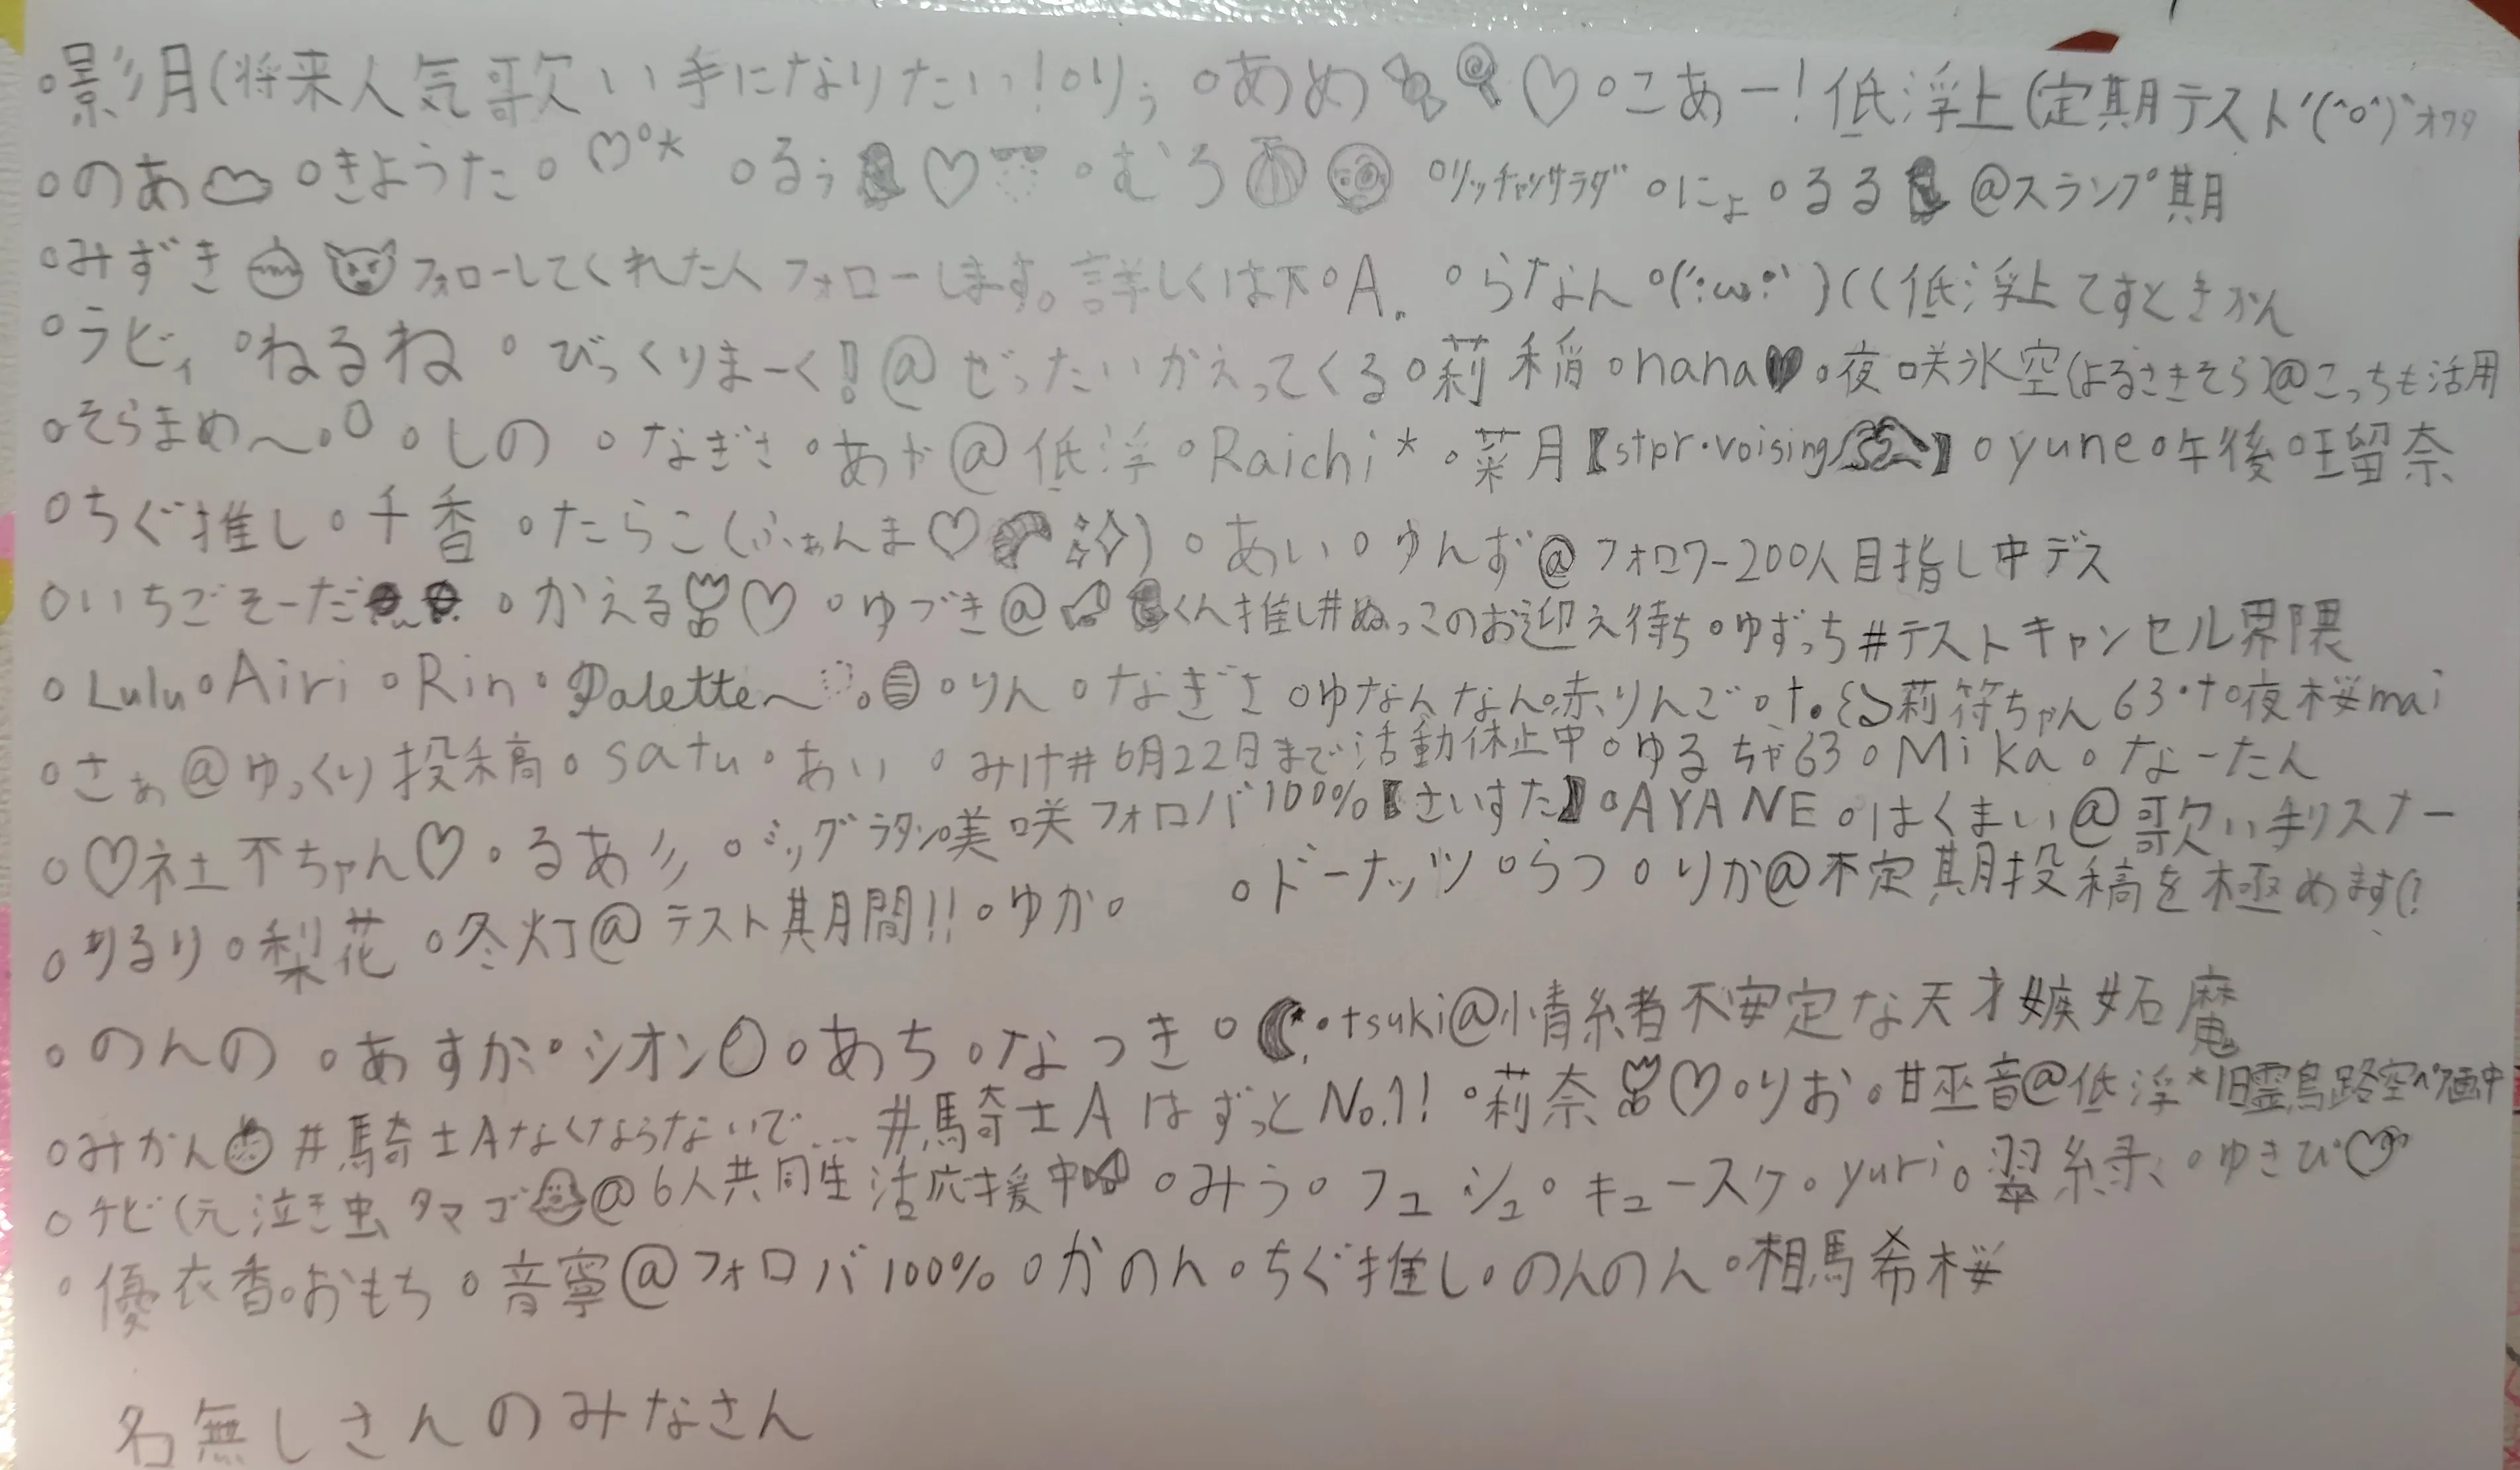 ○影月(将来人気歌い手になりたいっ!○りぅ ○あめ♡○こあー!低浮上(定期テスト'(^o^)`ｵﾜﾀ
○のあ ○きようた○ ♡°* ○るぅ♡ ○むろ ○リッチャンサラダ ○にょ○るる @スランプ期
○みずき フォローしてくれた人フォローします。詳しくは下○A. ○らなん○(´:ω:`)((低浮上てすときかん
○ラビィ ○ねるね ○びっくりまーく!@ぜったいかえってくる○莉稲○nana♥○夜咲氷空(よるさきそら)@こっちも活用
○そらまめ〜○○しの ○なぎさ○あか@低浮○Raichi*○菜月【stpr・voising】○yune○午後○王留奈
○ちぐ推し○千香○たらこ(ふぁんま♡)○あい○ゆんず@フォロワー200人目指し中デス
○いちごそーだ ○かえる♡○ゆづき@くん推し#ぬっこのお迎え待ち○ゆずっち#テストキャンセル界隈
○Lulu○Airi○Rin○Palette〜○○りん○なぎさ○ゆなんなん○赤りんご○†.莉符ちゃん63・†○夜桜mai
○さぁ@ゆっくり投稿○satu○あい○みけ#6月22日まで活動休止中○ゆるちゃ63○Mika○なーたん
○♡社不ちゃん♡○るあ彡○ミッグラタン○美咲フォロバ100%【さいすた】○AYANE○はくまい@歌い手リスナー
○りるり○梨花○冬灯@テスト期間!!○ゆか○ ○ドーナッツ○らつ○りか@不定期投稿を極めます(?
○のんの○あすか○シオン○あち○なつき○☾.○tsuki@情緒不安定な天才嫉妬魔
○みかん#騎士Aなくならないで....#騎士AはずっとNo.1!○莉奈♡○りお○甘巫音@低浮*旧霊鳥路空ペア画中
○チビ(元泣き虫タマゴ@6人共同生活応援中○みう○フュシュ○キュースケ○yuri○翠緑○ゆきぴ♡
○優衣香○おもち○音寧@フォロバ100%○かのん○ちぐ推し○のんのん○相馬希桜
名無しさんのみなさん